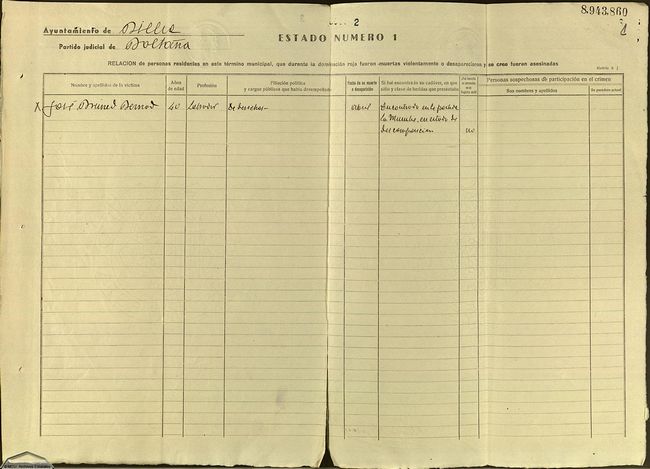 8.943.860
2
1
Ayuntamiento de Bielsa
Partido judicial de Boltaña
ESTADO NUMERO 1
RELACION de personas residentes en este término municipal, que durante la dominación roja fueron muertas violentamente o desaparecieron y se cree fueron asesinadas
Nombre y apellidos de la víctima
Años de edad
Profesión
Filiación política
y cargos públicos que había desempeñado
Fecha de su muerte
o desaparición
Si fué encontrado su cadáver, en qué
sitio y clase de heridas que presentaba
Personas sospechosas de participación en el crimen
Sus nombres y apellidos
Su paradero actual
X José Bruned Bernad 40 Labrador De derechas Abril Encontrado en
en estado de
descomposición no